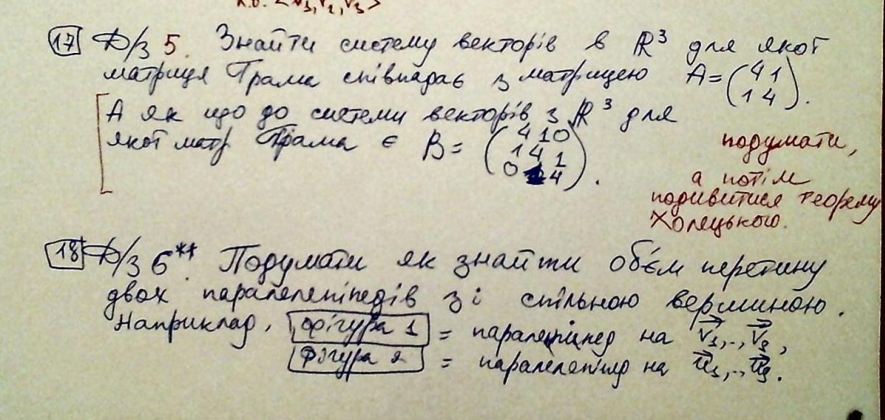 к.о. <v₁, v₂, v₃>
17 Д/з 5. Знайти систему векторів в ℝ³ для якої
матриця Грама співпадає з матрицею A = (4 1
1 4).
А як що до системи векторів з ℝ³ для
якої матр. Грама є B = (4 1 0
1 4 1
0 1 4).
подумати,
а потім
подивитися теорему
Холецького.
18 Д/з 6**. Подумати як знайти об'єм перетину
двох паралелепіпедів зі спільною вершиною.
Наприклад, фігура 1 = паралепіпед на v₁,.., v₃,
фігура 2 = паралелепіпед на u₁,.., u₃.